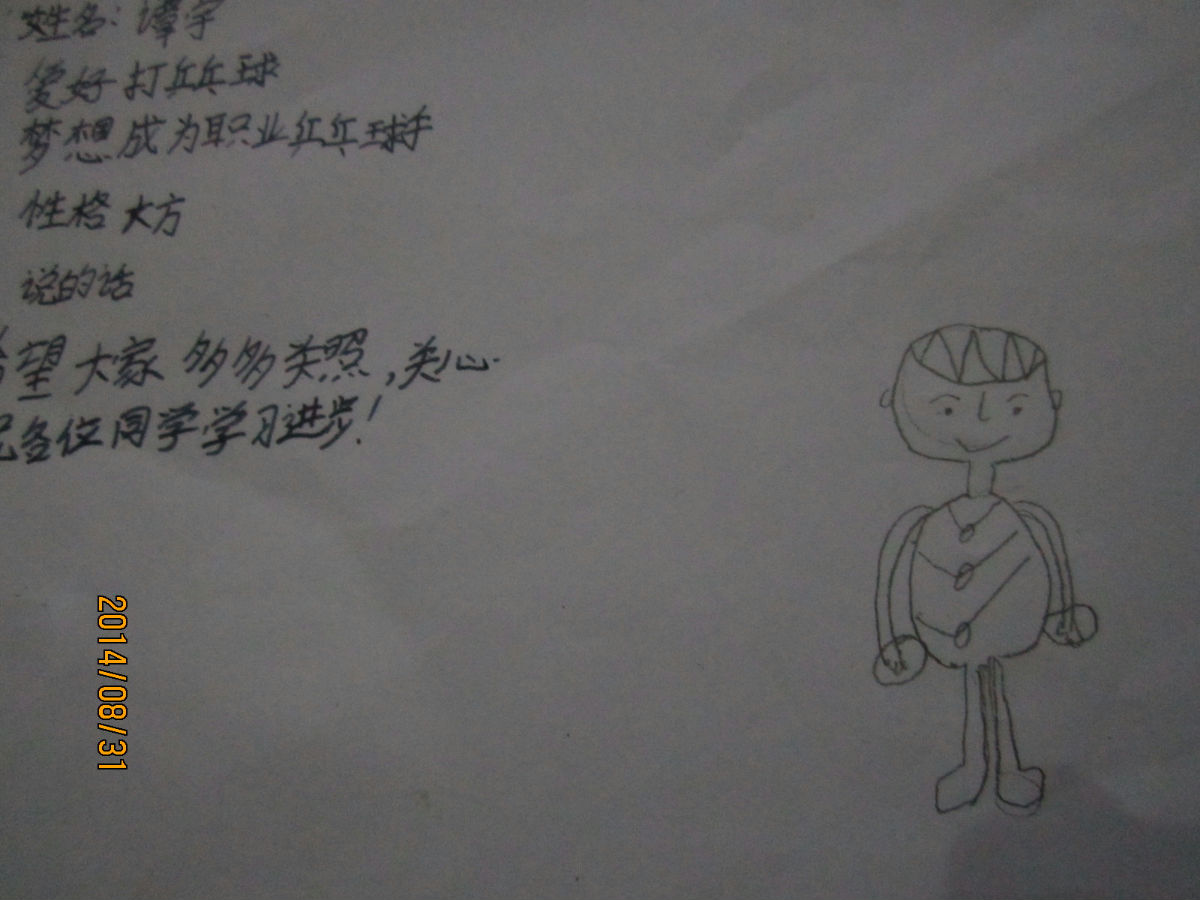 姓名：谭宇
爱好 打乒乓球
梦想 成为职业乒乓球手
性格 大方
说的话
希望大家 多多关照，关心
祝各位同学学习进步！
2014/08/31